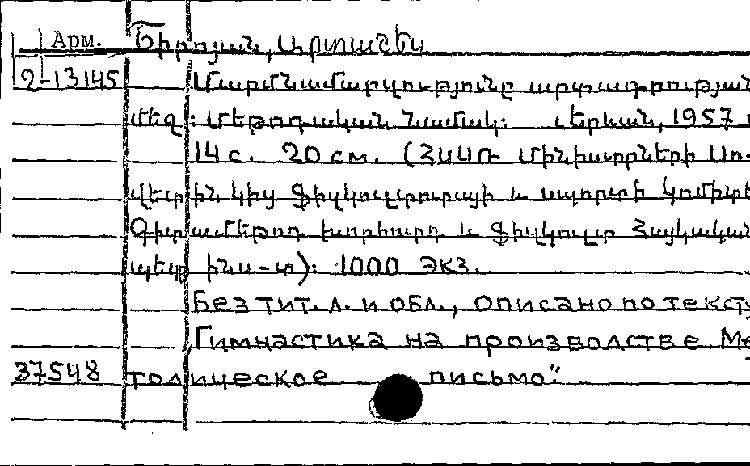 Арм. Ծիրոյան, Արտաշես
2-13145 Մարմնամարզությունը արտադրության
մեզ: Մեթոդական նամակ: Երևան, 1957
14 с. 20 см. (ՀՍՍՌ Մինիստրների Սո-
վետին կից ֆիզկուլտուրայի և սպորտի կոմիտե
Գիտ ամեթոդ խորհուրդ և ֆիզկուլտ Հայկական
պետ ինս-տ): 1000 экз.
Без тит. л. и обл., описано по тексту
"Гимнастика на производстве Ме
37548 тодическое письмо".